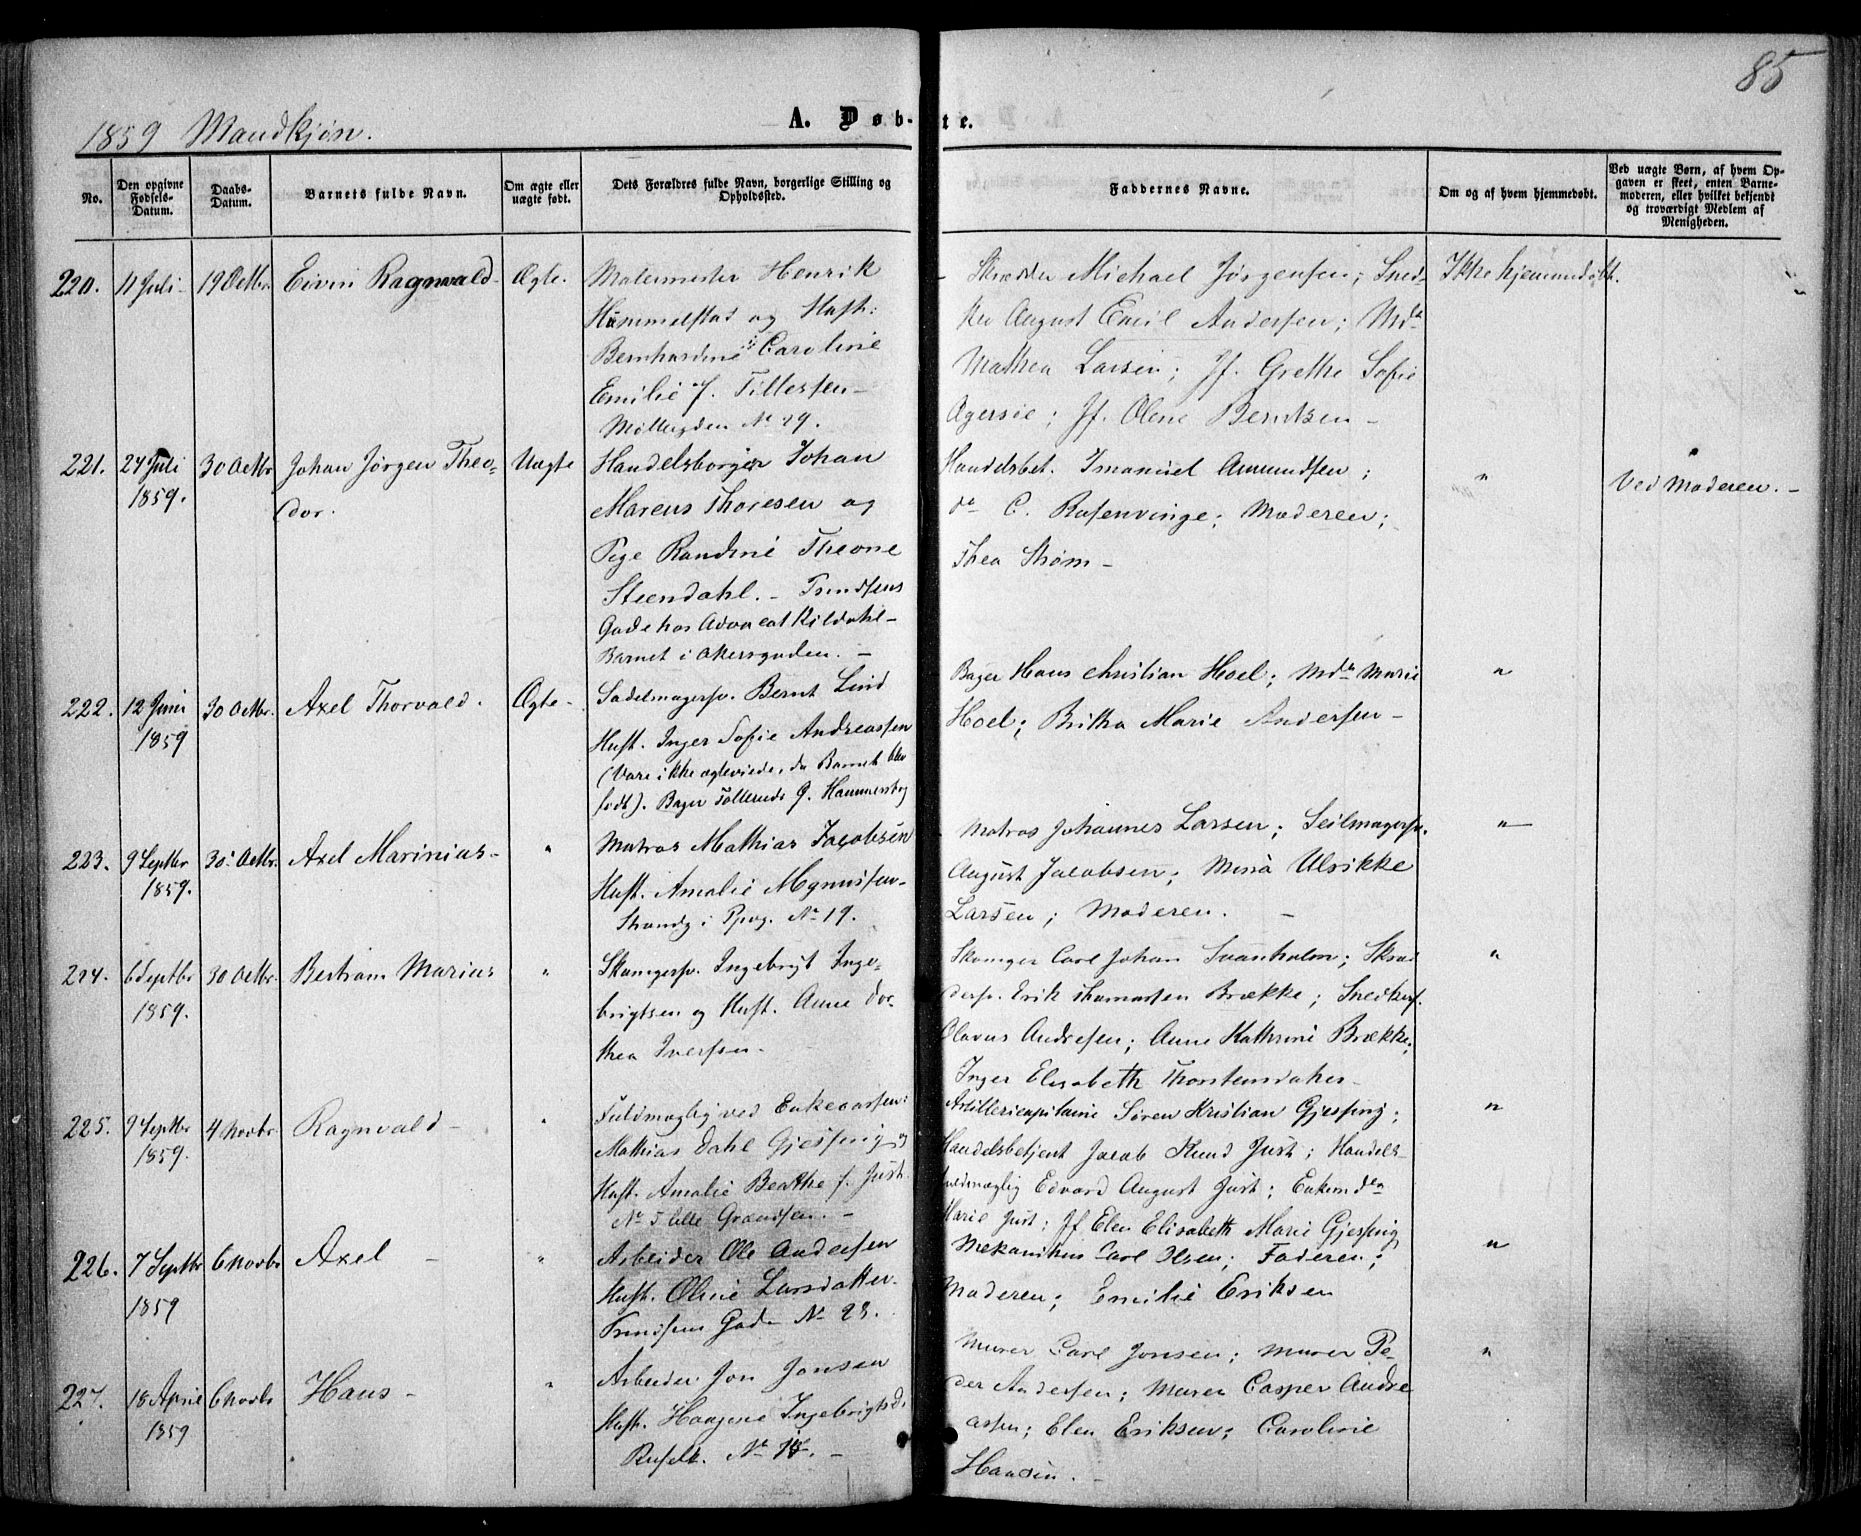 85
1859 Mandkjøn.
A. Døb-te.
No.
Den opgivne Fødsels-Datum.
Daabs-Datum.
Barnets fulde Navn.
Om ægte eller uægte født.
Dets Forældres fulde Navn, borgerlige Stilling og Opholdssted.
Faddernes Navne.
Om og af hvem hjemmedøbt.
Ved uægte Børn, af hvem Opgaven er skeet, enten Barnemoderen, eller hvilket bekjendt og troværdigt Medlem af Menigheden.
220. 11 Juli - 19 Octbr. Eivin Ragnvald - Ægte.
Malermester Henrik
Hammelstad og Hust:
Bernhardine Caroline
Emilie f. Tillessen -
Møllergden No 29.
Skrædder Michael Jørgensen; Sned-
ker August Emil Andersen; Mda
Mathea Larsen; Jf. Grethe Sofie
Agersie; Jf. Olene Berntsen -
Ikke hjemmedøbt.
221. 27 Juli 1859. 30 Octbr Johan Jørgen Theo-
dor. Uægte
Handelsborger Johan
Marcus Thoresen og
Pige Randine Theone
Steendahl. - Trondsens
Gade hos Advocat Kildahl -
Barnet i Akersgaden. -
Handelsbet. Imanuel Amundsen;
da C. Rosenvinge; Moderen;
Thea Strøm -
"
Ved Moderen. -
222. 12 Juni 1859 30 Octbr. Axel Thorvald. Ægte -
Sadelmagersv. Bernt Lind
Hust. Inger Sofie Andreassen
(Vare ikke ægteviede, da Barnet blev
født). Bager Tollerud G. Hammersbog
Bager Hans Christian Hoel; Mda Marie
Hoel; Britha Marie Andersen -
"
223. 9 Septbr 1859. 30 Octbr. Axel Marinias - "
Matros Mathias Jacobsen
Hust. Amalie Mgnussen -
Strandg i Ppvg. No 19.
Matros Johannes Larsen; Seilmagersv.
August Jacobsen; Ulrikke
Larsen; Moderen. -
"
224. 6 Septbr 1859. 30 Octbr. Bertram Marius "
Skomgersv. Ingebrigt Inge-
brigtsen og Hust. Anne Dor-
thea Iversen -
Skomger Carl Johan Svanholm; Skræd
dersv. Erik Thomassen Brække; Snedkersv.
Olavus Andresen; Anne Kathrine Brække;
Inger Elisabeth Thorstensdater -
"
225. 9 Septbr 1859. 4 Novbr. Ragnvald - "
Fuldmægtig ved Enkecassen:
Mathias Dahl Gjessing og
Hust. Amalie Beathe f. Just
No 5 lille Grændsen. -
Artillericapitaine Søren Kristian Gjessing;
Handelsbetjent Jacob Knud Just; Handels-
fuldmægtig Edvard August Just; Enkemda
Marie Just; Jf Elen Elisabeth Marie Gjessing
"
226. 7 Septbr 1859 6 Novbr Axel - "
Arbeider Ole Andersen
Hust. Oline Larsdatter.
Trondsens Gade No 23.
Mekanikus Carl Olsen; Faderen;
Moderen; Emilie Eriksen
"
227. 18 April 1859 6 Novbr Hans - "
Arbeider Jon Jonsen
Hust. Haagine Ingebrigtsd.
Ruselk. No 14. -
Murer Carl Jonsen; Murer Pe-
der Andersen; Murer Casper Andre
assen; Elen Eriksen; Caroline
Hansen. -
"